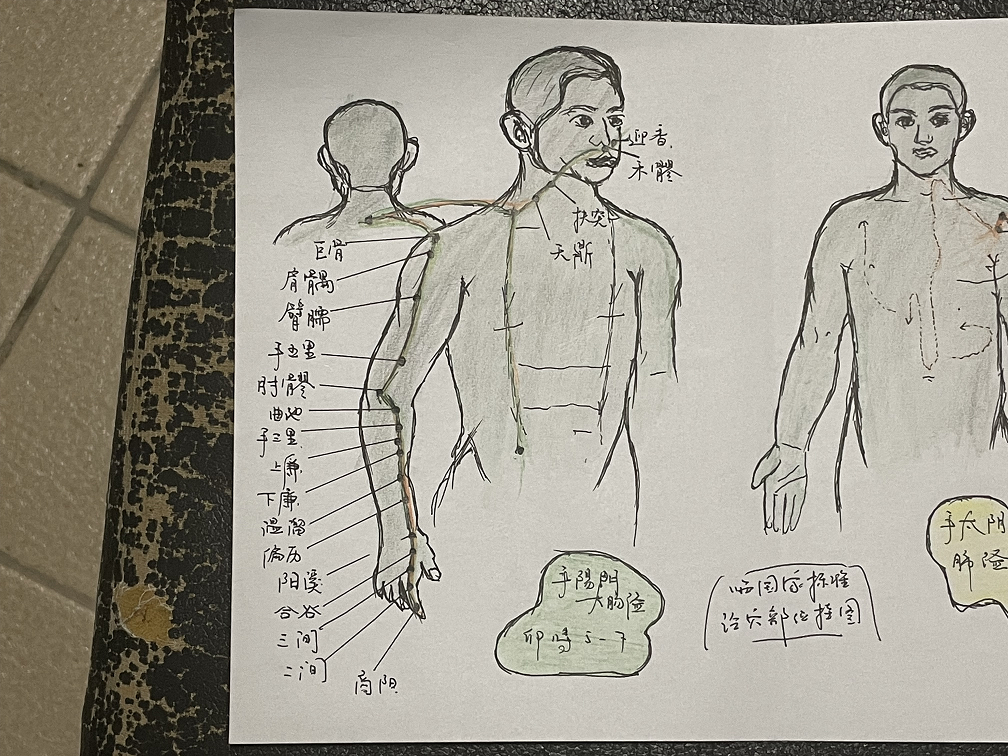 迎香
禾髎
扶突
天鼎
巨骨
肩髃
臂臑
手五里
肘髎
曲池
手三里
上廉
下廉
温溜
偏历
阳溪
合谷
三间
二间
商阳
手陽明
大肠经
卯時5-7
俞穴部位挂图
手太阴
肺经